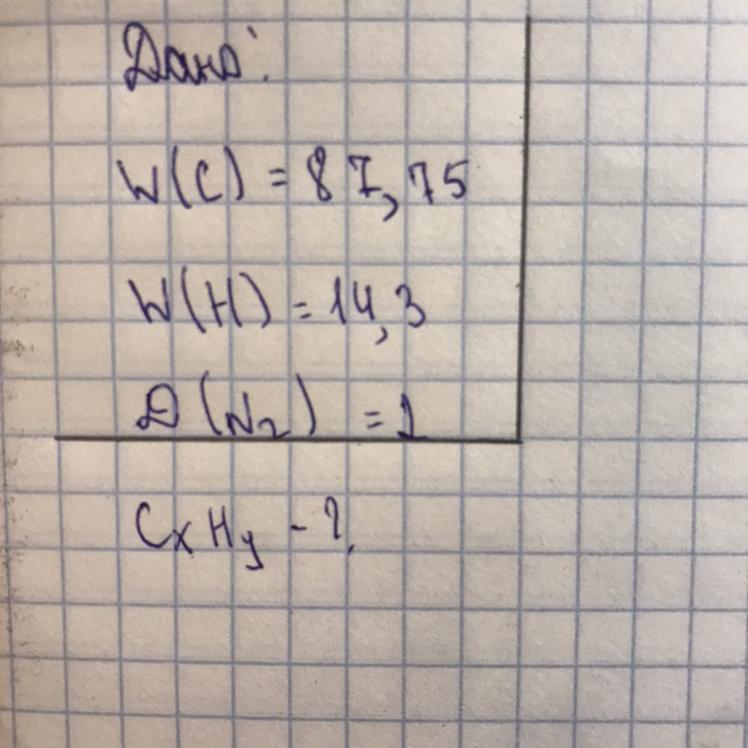 Дано:
W(C) = 87,75
W(H) = 14,3
D(N2) = 1
CxHy - ?